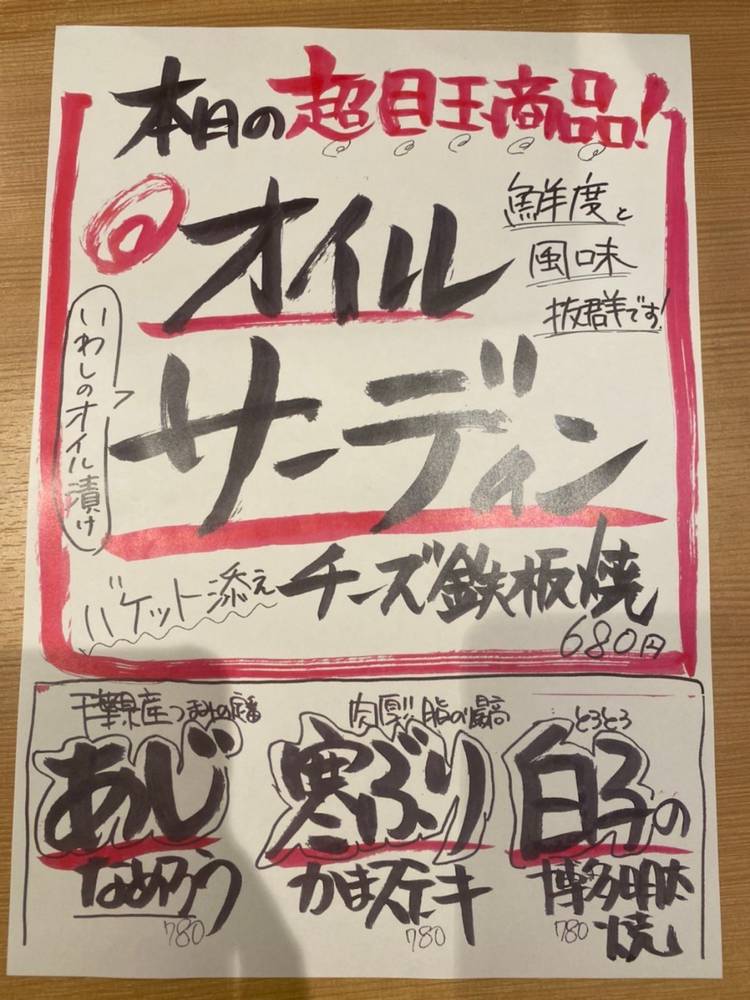 本日の超目玉商品!
オイル
サーディン
鮮度と
風味
抜群です!
いわしのオイル漬け
バゲット添え チーズ鉄板焼
680円
千葉県産つまみの定番
あじ
なめろう
780
肉厚! 脂の最高
寒ぶり
かまステーキ
780
とろとろ
白子の
博多明太
焼
780